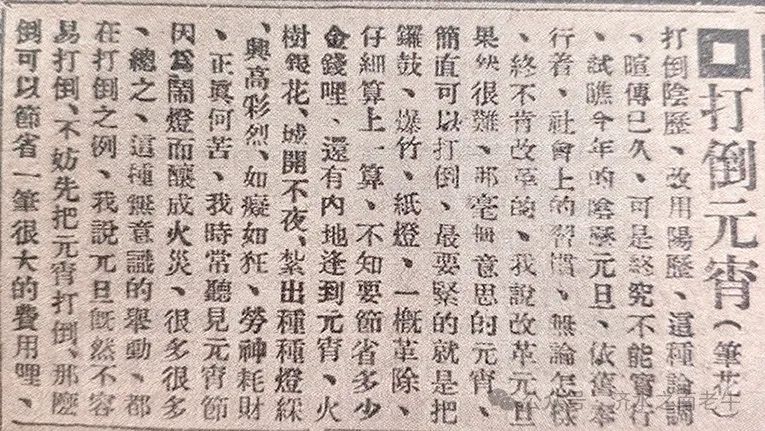 打倒元宵(筆花)
打倒陰歷、改用陽歷、這種論調
、喧傳已久、可是終究不能實行
、試瞧今年的陰歷元旦、依舊奉
行着、社會上的習慣、無論怎樣
、終不肯改革的、我說改革元旦
果然很難、那毫無意思的元宵、
簡直可以打倒、最要緊的就是把
鑼鼓、爆竹、紙燈、一概革除、
仔細算上一算、不知要節省多少
金錢哩、還有內地逢到元宵、火
樹銀花、城開不夜、紮出種種燈綵
、興高彩烈、如癡如狂、勞神耗財
、正眞何苦、我時常聽見元宵節
因爲鬧燈而釀成火災、很多很多
、總之、這種無意識的舉動、都
在打倒之例、我說元旦旣然不容
易打倒、不妨先把元宵打倒、那麽
倒可以節省一筆很大的費用哩、